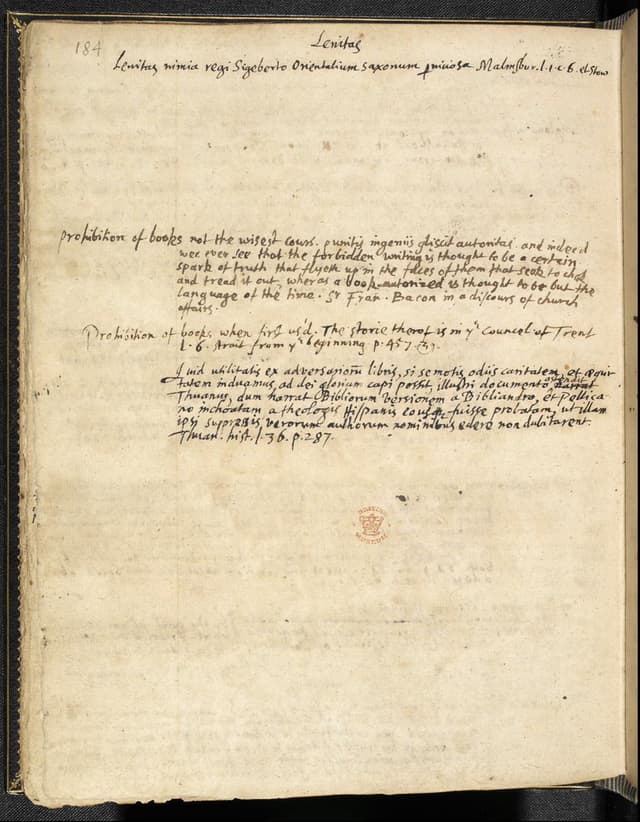 184
Lenitas
Lenitas nimia regi Sigeberto Orientalium saxonum pniciosa Malmsbur. l. 1. c. 6. et Stow
Prohibition of books not the wisest cours. punitis ingeniis gliscit autoritas. and indeed
wee ever see that the forbidden writing is thought to be a certain
spark of truth that flyeth up in the faces of them that seek to chok
and tread it out, wheras a book autorized is thought to be but the
language of the time. Sr Fran. Bacon in a discours of church
affairs.
Prohibition of books when first us'd. The storie therof is in ye Councel of Trent
l. 6. strait from ye beginning p. 457. &c.
Quid utilitatis ex adversariorum libris, si semotis odiis caritatem, et æqui-
tatem induamus, ad dei gloriam capi possit, illustri documento ostendit narrat
Thuanus, dum narrat Bibliorum versionem a Bibliandro, et Pellica
no inchoatam a theologis Hispanis eousque fuisse probatam, ut illam
ipsi suppressis verorum authorum nominibus edere non dubitarent.
Thuan. hist. l. 36. p. 287.
BRITISH MUSEUM